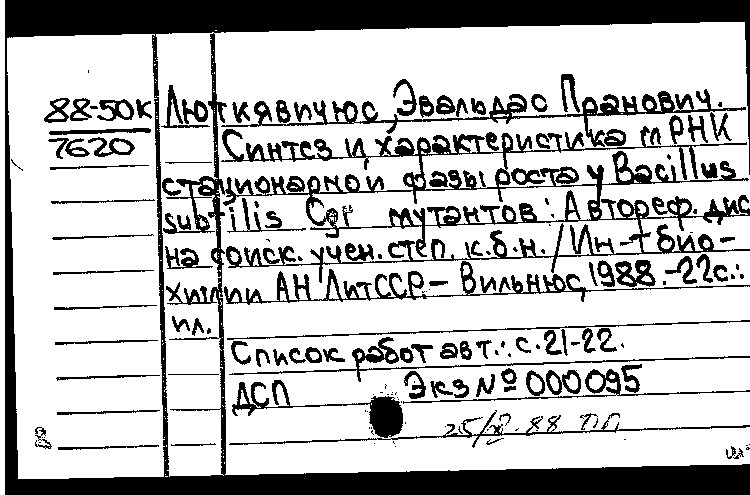 88-50К Люткявичюс, Эвальдас Пранович.
7620 Синтез и характеристика мРНК
стационарной фазы роста у Bacillus
subtilis Cgr мутантов: Автореф. дис
на соиск. учен. степ. к.б.н. / Ин-т био-
химии АН ЛитССР. - Вильнюс, 1988. - 22с.:
ил.
Список работ авт.: с. 21-22.
ДСП Экз № 000095